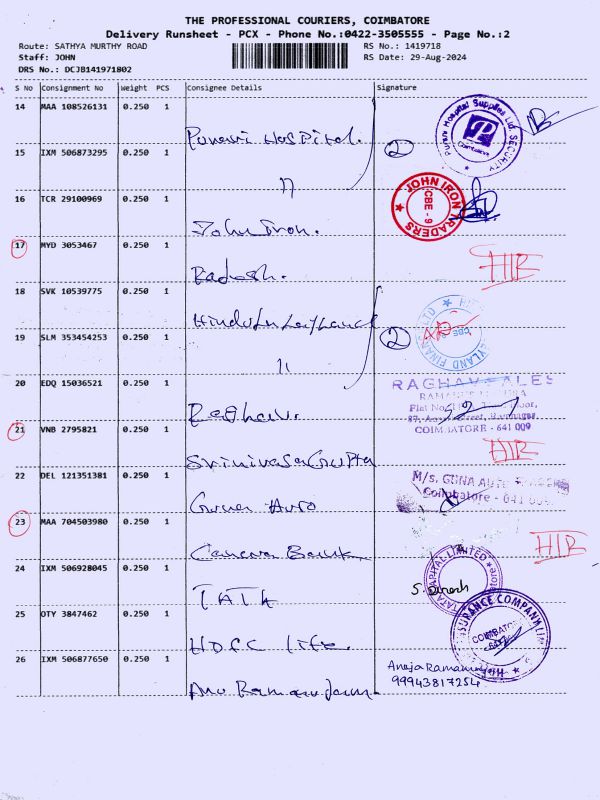 THE PROFESSIONAL COURIERS, COIMBATORE
Delivery Runsheet - PCX - Phone No.:0422-3505555 - Page No.:2
Route: SATHYA MURTHY ROAD
RS No.: 1419718
Staff: JOHN
RS Date: 29-Aug-2024
DRS No.: DCJB141971802
S No Consignment No Weight PCS Consignee Details Signature
14 MAA 108526131 0.250 1 Hospital.
Hospital Supplies SECURITY
Coimbatore
15 IXM 506873295 0.250 1 "
2
16 TCR 29100969 0.250 1 John Iron.
JOHN IRON TRADERS CBE - 9
17 MYD 3053467 0.250 1
18 SVK 10539775 0.250 1 Hinduja Leyland
LEYLAND FINANCE LTD
19 SLM 353454253 0.250 1 "
2
20 EDQ 15036521 0.250 1 Raghav.
RAGHAV SALES
COIMBATORE - 641 009
21 VNB 2795821 0.250 1 Srinivasa Gupta
22 DEL 121351381 0.250 1 Guna Auto
M/s. GUNA AUTO
Coimbatore - 641 009
23 MAA 704503980 0.250 1 Canara Bank
24 IXM 506928045 0.250 1 TATA
TATA CAPITAL LIMITED
S. Dinesh
25 OTY 3847462 0.250 1 HDFC life.
INSURANCE COMPANY
COIMBATORE
26 IXM 506877650 0.250 1 Anu Ramanujam
Anuja Ramanujam
9994381725